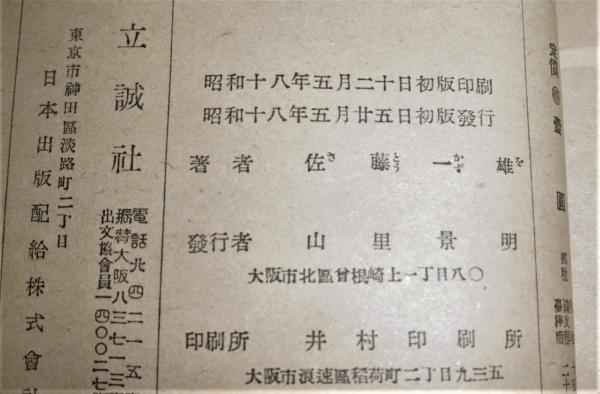 昭和十八年五月二十日初版印刷
昭和十八年五月廿五日初版發行
著者 佐藤一雄
發行者 山里景明
大阪市北區曾根崎上一丁目八〇
印刷所 井村印刷所
大阪市浪速區稻荷町二丁目九三五
立誠社
電話北四二一五
振替大阪八三七一三
出文協會員一四〇〇二七
東京市神田區淡路町二丁目
日本出版配給株式會社
定價
壹圓